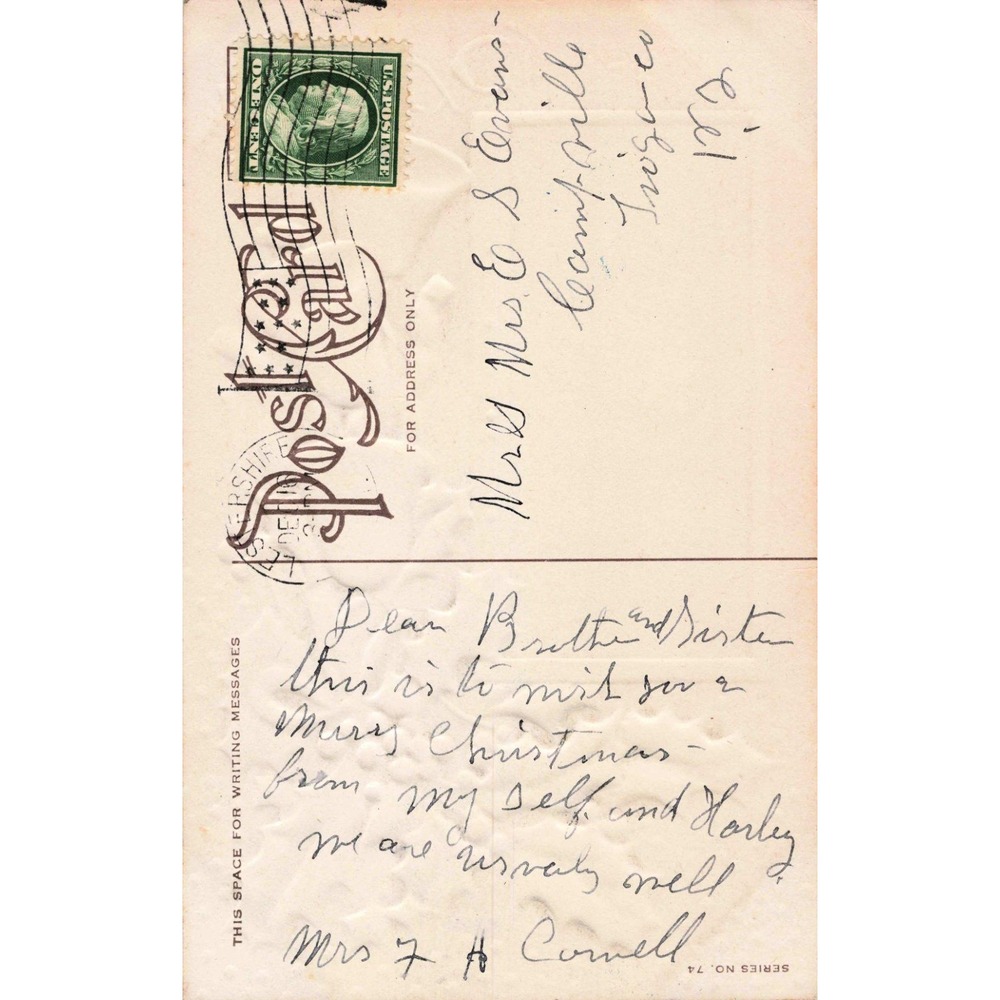 U.S. POSTAGE
ONE CENT
Post Card
FOR ADDRESS ONLY
LESTERSHIRE
DEC 19
Mr & Mrs. E S Evans-
Campville
Tioga-co
N.Y.
THIS SPACE FOR WRITING MESSAGES
Dear Brother and Sister
this is to wish you a
Merry Christmas-
from my self and Harley
we are usualy well
Mrs F H Cornell
SERIES NO. 74